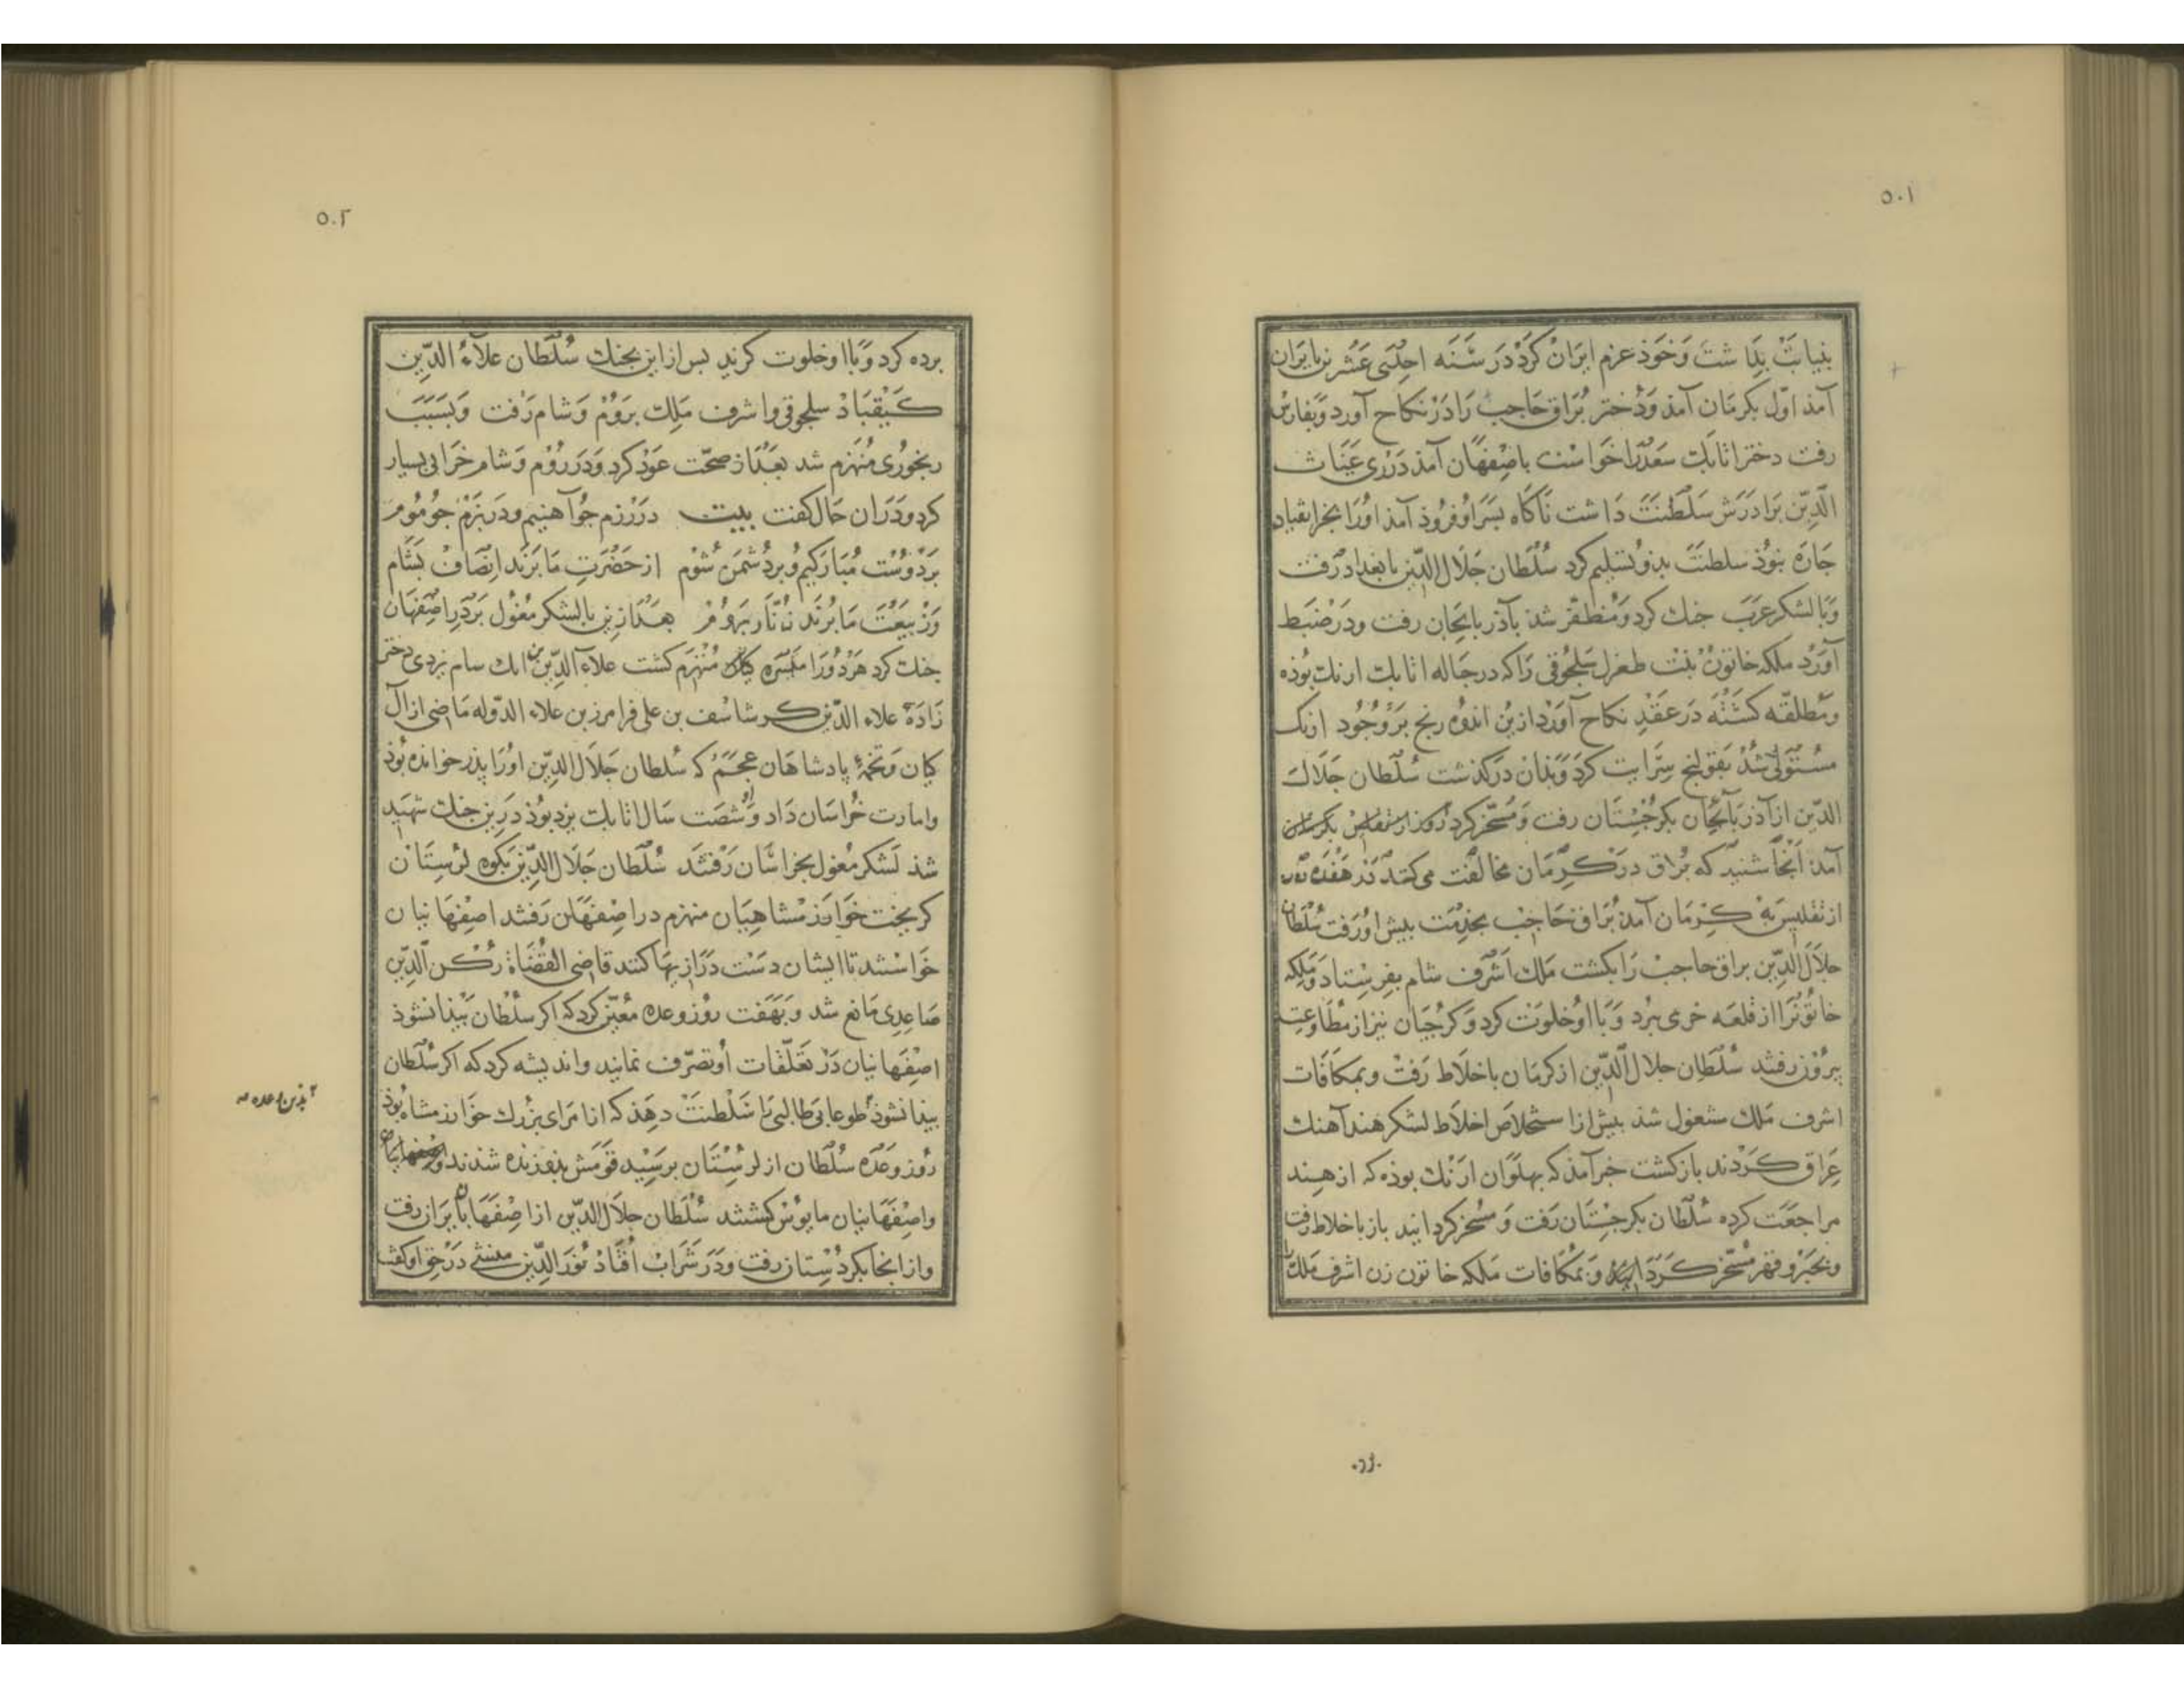 ۵۰۱
بنیابت بداشت وَخَوذ عزم ایران کرد در سَنَه احدی عَشْرین بایران
آمذ اوّل بکرمان آمذ وَدُختر بُراق حَاجب رَا دَرْ نکاح آورد وَبفارس
رفت دختر اتابک سَعد را خواست باصفهان آمذ دَرْ ری غیاث
الدّین بَرادَرَش سَلطَنَتْ دَاشت نَاکَاه بسَر اوُ فروذ آمذ اوُرا بجز انقیاد
جَارَه نبوُذ سلطنَتْ بذو تسلیم کرد سُلطان جَلال الدّین بابغداد رَفت
وَبا لشکر عَرَب جنك کرد وَمُظفّر شذ بآذربایجان رفت ودَر ضَبط
آورْد ملکه خاتون بنْت طغرل سَلجُوقی رَا که در حَباله اتابك ازبك بوُذه
ومُطلقّه کشته دَر عَقْدِ نکاح آورد ازین اندوُه رنج بَر وُجُود ازبک
مُستَولی شذ بقولنج سِرَایت کرد وَبذان درکذشت سُلطان جَلال
الدّین از آذربایجان بکرجستان رفت وَمُسخّر کرد
آمذ آنجا شنید که بُراق در کرمان مخالفت می کند در هفده روز
از تفلیس به کرمان آمذ بُراق حَاجب بخذمت بیش اوُ رَفت سُلطان
جلال الدّین براق حاجب رَا بکشت ملك اَشرف شام بفرستاد وَملکه
خاتوُنرا از قلعَه خری ببُرد وَبا اوُ خلوَت کرد وَکرجیان نیز از مُطاوعت
بیرُوُن رفتند سُلطان جلال الدّین از کرمان باخلاط رَفتْ وبمکافات
اشرف مَلك مشغول شذ بیش از استخلاص اخلاط لشکر هند آهنك
عِراق کَرْدند بازکشت خبر آمذ که بهلوَان ازبك بوذه که از هند
مراجعت کرده سُلطان بکرجستان رَفت وَ مُسخر کردانید باز باخلاط رفت
وبجَبْر و قهر مُسخّر کَرْدَانید وَ بمُکافات مَلکه خاتون زن اشرف ملك را
۵۰۲
برده کرد وَبا او خلوت کرند بس از این بجنك سُلطان علاءُ الدّین
کَیْقبَاد سلجوقی و اشرف مَلِك برَوُم وَشام رَفت وَبسَبَب
رنجوُری مُنهزم شد بعَد از صحّت عَوْد کرد وَدَر روُم وَشام خَرابی بسیار
کرد ودَران حَال کفت بیت در رزم جُو آهنیم ودر بَزم جُو مُوم
بَر دوُست مُبارکیم و بر دُشمن شوُم از حَضْرَت ما برَند انصاف بشام
وَز بیعت ما برند زنّار برُوم بعَد ازین با لشکر مغول بر در اصفهان
جنك کرد هَر دوُ را میسَره کان مُنهزم کشت علاء الدّین بن ابك سام یزدی دختر
زادَهٔ علاء الدّین کرشاسْف بن علی فرامرز بن علاء الدّوله ماضی از آل
کیان وَتخمهٔ بادشاهان عجَم که سُلطان جلال الدّین اوُرا بذر خوانده بوُذ
وامارت خُراسَان دَاد و شصَت سَال اتابك یزد بوُذ دَرین جنك شهید
شذ لَشکر مُغول بخراسَان رَفتند سُلطان جَلال الدّین بکوه لُرستان
کریخت خوارزمشاهیان منهزم در اصفهان رَفتند اصفهانیان
خواستند تا ایشان دست دَرازیها کنند قاضی القُضاة رُکن الدّین
صاعدی مانع شد وَ بهَفت روُز وعده معیّن کرد که اکر سُلطان بَیذا نشوذ
اصفهانیان دَر تعَلّقات اوُ تصرّف نمایند و اندیشه کرد که اکر سُلطان
بیذا نشوذ طوعا بی طالبی را سَلطنَت دهَذ که از امَرای بزرك خوارزمشاه بوُذ
روُز وَعده سُلطان از لرُستان برسَید قومَش بذو زنده شدند و
واصفهانیان مایوُس کشتند سُلطان جلال الدّین از اصفهان بآبران رفت
واز انجا بکردُستان رفت ودَر شَرابْ اُفتاد نوُر الدّین منشی دَر حق او کفت